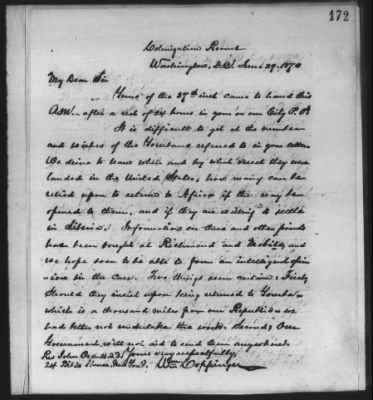 172
Colonization Rooms
Washington, D.C. June 29, 1870
My Dear Sir
Yours of the 27th inst came to hand this
A.M. - after a rest of 24 hours in your or our City P.O.
It is difficult to get at the number
and wishes of the Yorubans referred to in your letter.
We desire to learn when and by what vessel they were
landed in the United States, how many can be
relied upon to return to Africa if the way be
opened to them, and if they are willing to settle
in Liberia. Information on these and other points
has been sought at Richmond and Mobile, and
we hope soon to be able to form an intelligent opin-
ion in the case. Two things seem certain: First,
Should they insist upon being returned to Yoruba -
which is a thousand miles from our Republic - we
had better not undertake the work. Second, Our
Government will not aid to send them anywhere.
Rev. John Orcutt D.D. Yours very respectfully,
24 Bible House New York. Wm Coppinger